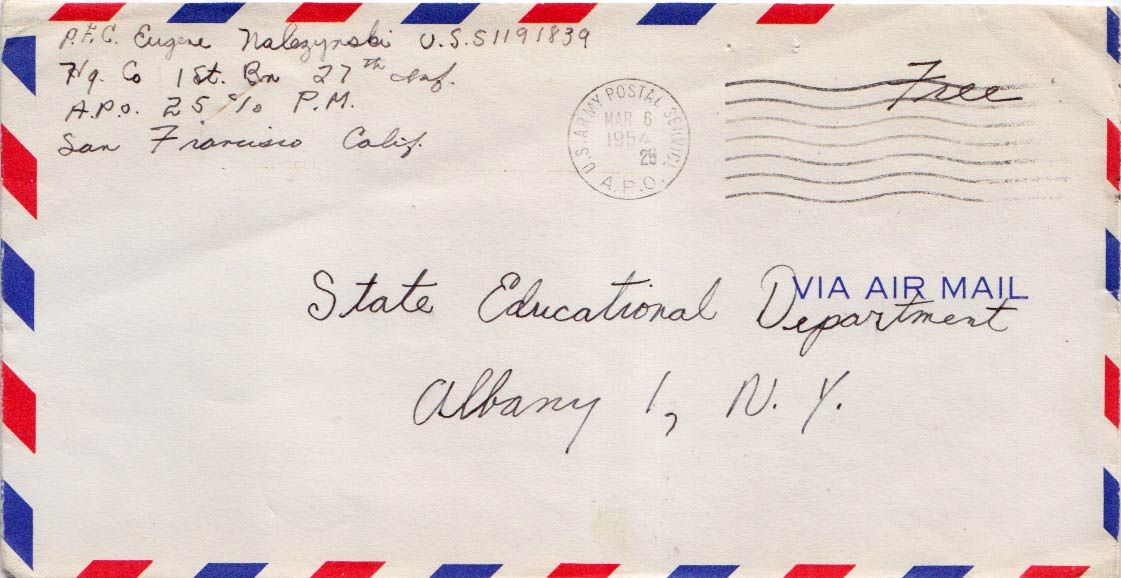 P.F.C. Eugene Nalezynski U.S.51191839
Hq. Co 1St. Bn 27th Inf.
A.P.O. 25 c/o P.M.
San Francisco Calif.
U.S. ARMY POSTAL SERVICE
MAR 6
1954
25
A.P.O.
Free
VIA AIR MAIL
State Educational Department
Albany 1, N.Y.